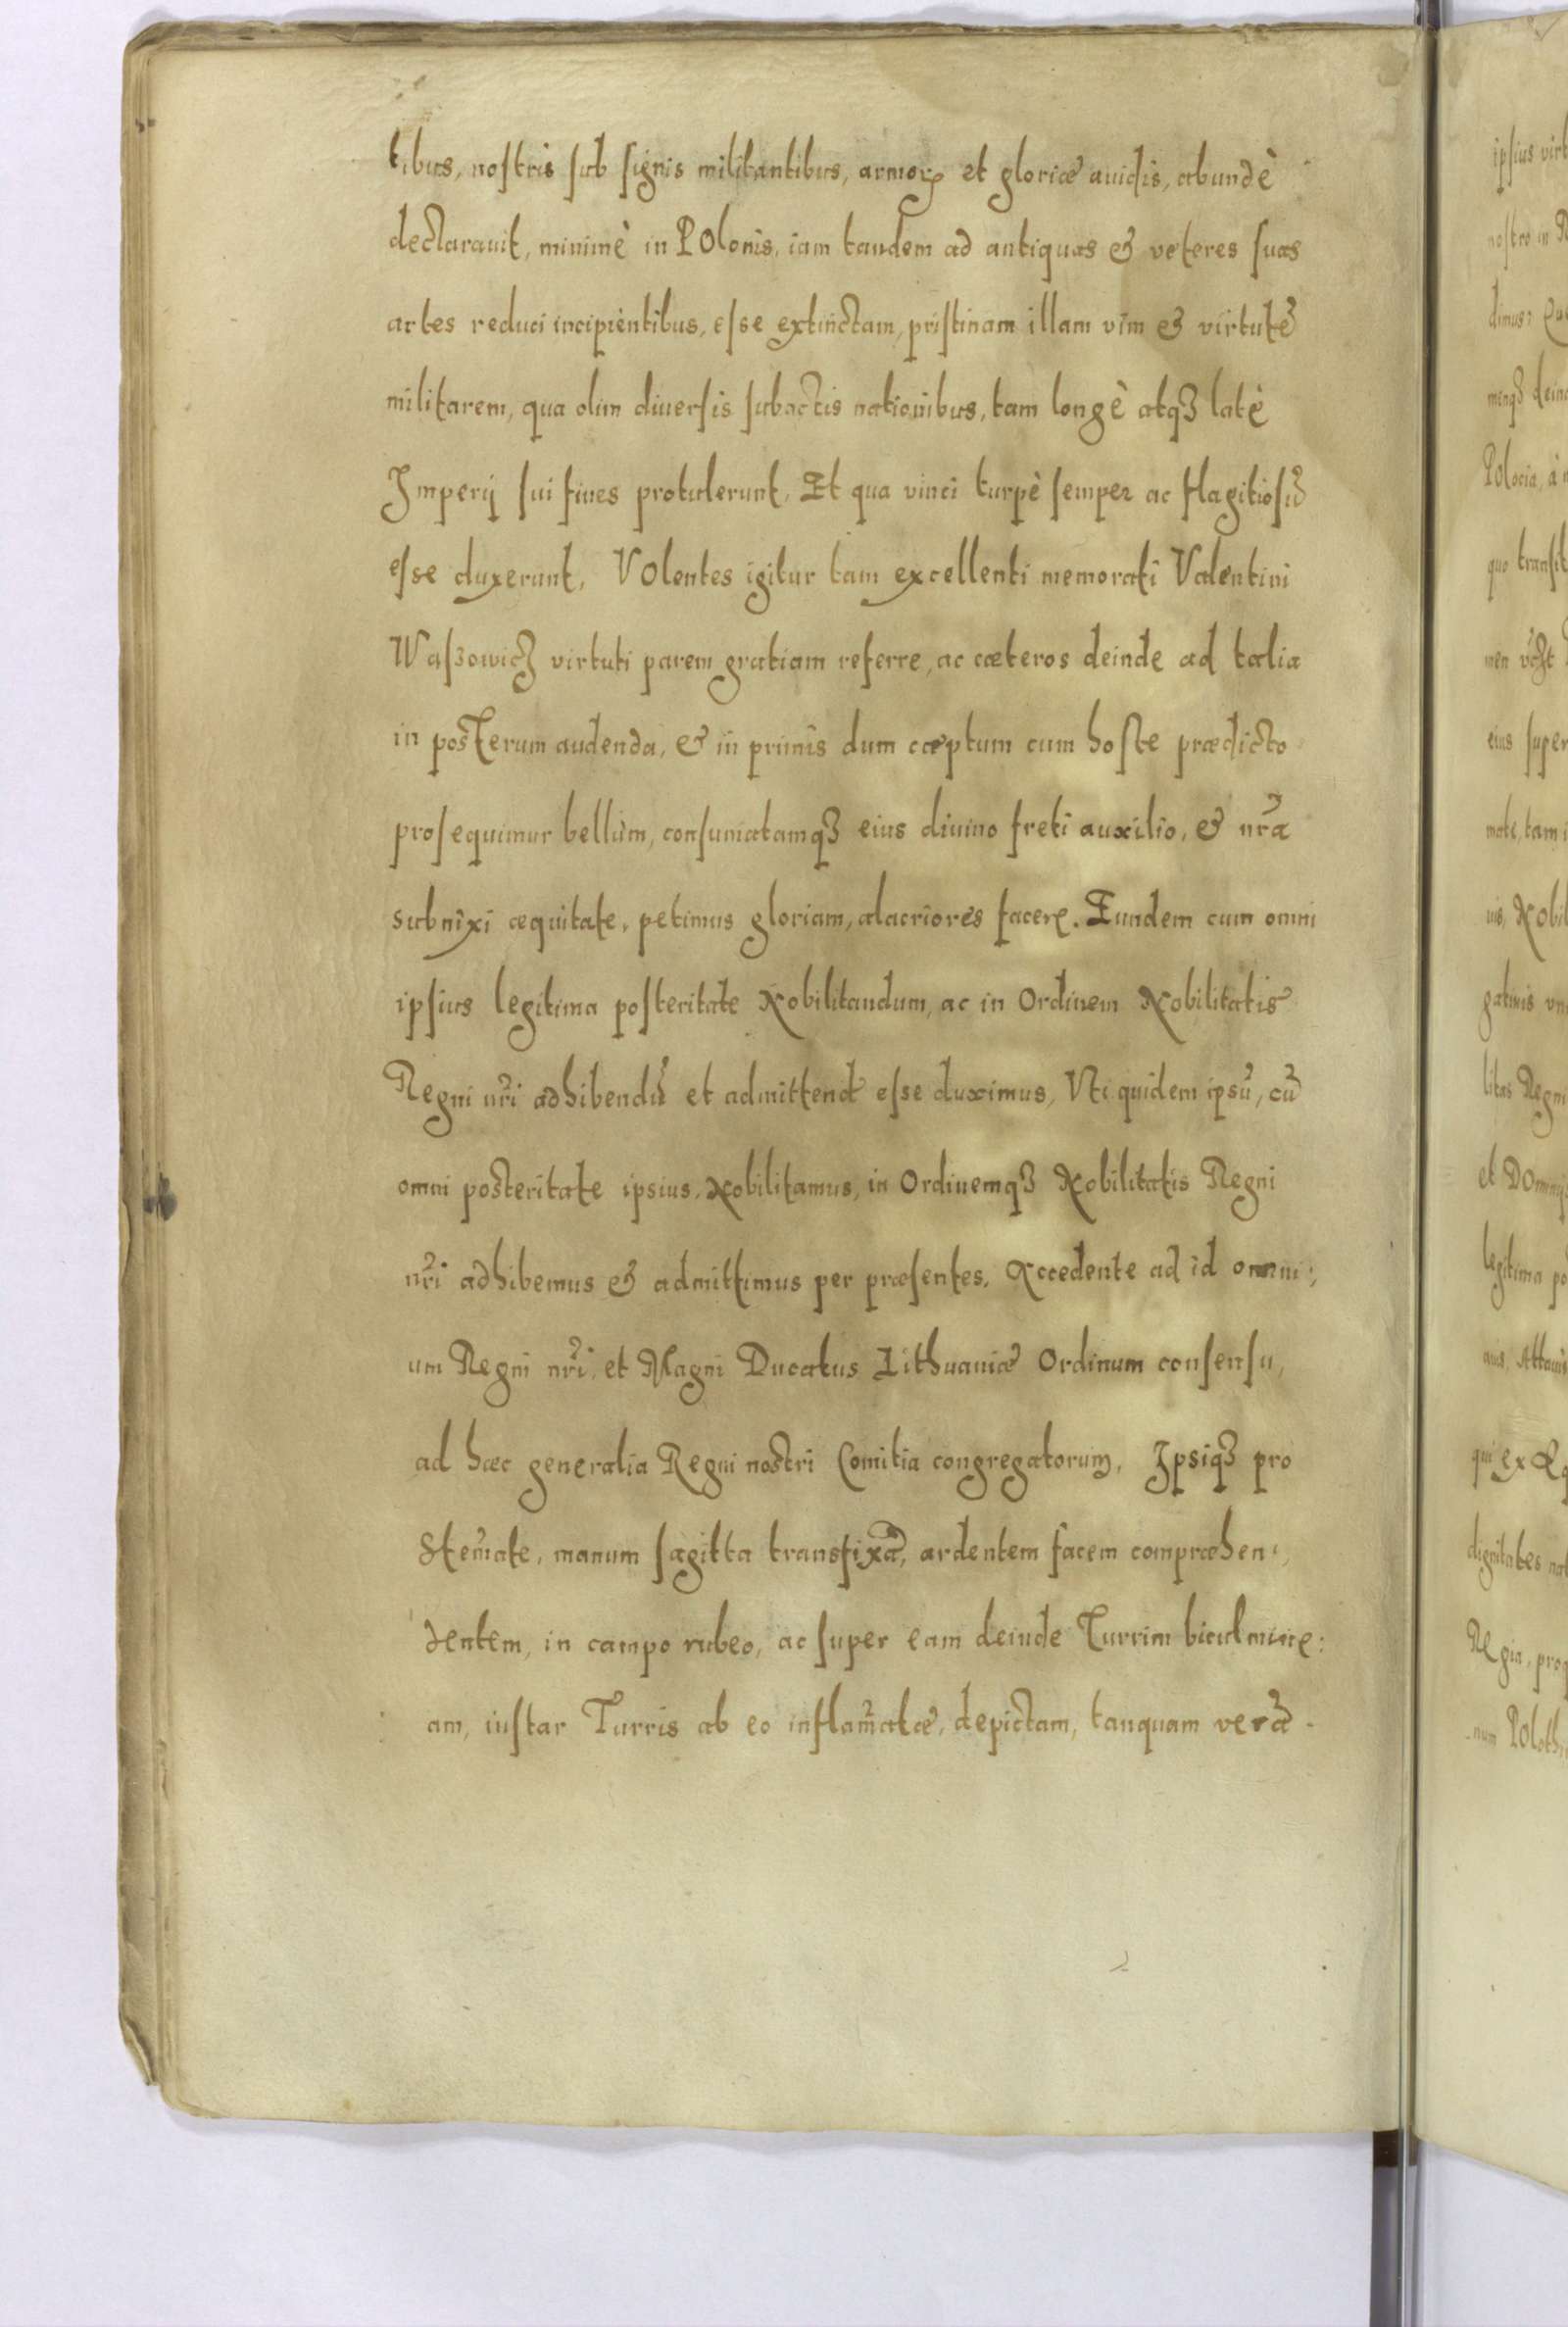 tibus, nostris sub signis militantibus, armorꝝ et gloriæ auidis, abundè
declarauit, minimè in POlonis, iam tandem ad antiquas & veteres suas
artes reduci incipientibus, esse extinctam, pristinam illam vim & virtutẽ
militarem, qua olim diuersis subactis nationibus, tam longè atqꝫ latè
Imperij sui fines protulerunt, Et qua vinci turpè semper ac flagitiosũ
esse duxerunt, VOlentes igitur tam excellenti memorati Valentini
Wąsʒowicʒ virtuti parem gratiam referre, ac cæteros deinde ad talia
in posterum audenda, & in primis dum cœptum cum hoste prædicto
prosequimur bellum, consumatamqꝫ eius diuino freti auxilio, & nr̃ã
subnixi æquitate, petimus gloriam, alacriores facere. Eundem cum omni
ipsius legitima posteritate Nobilitandum, ac in Ordinem Nobilitatis
Regni nr̃i adhibendũ et admittend̃ esse duximus, Vti quidem ipsũ, cũ
omni posteritate ipsius, Nobilitamus, in Ordinemqꝫ Nobilitatis Regni
nr̃i adhibemus & admittimus per præsentes. Accedente ad id omni:
um Regni nr̃i, et Magni Ducatus Lithuaniæ Ordinum consensu,
ad hæc generalia Regni nostri Comitia congregatorum, Ipsiqꝫ pro
Stem̃ate, manum sagitta transfixã, ardentem facem compræhen:
dentem, in campo rubeo, ac super eam deinde Turrim biculmine:
am, instar Turris ab eo inflam̃atæ, depictam, tanquam verã
ipsius virt
nostro in R
dimus:
menqꝫ dein
Polocia, à
quo transit
eius super
mate, tam i
uis, Nobil
gatiuis vn
litas Regni
et DOmin
legitima po
auis, Attauis
qui ex Eq
dignitates
Regia, proq
num POlothi